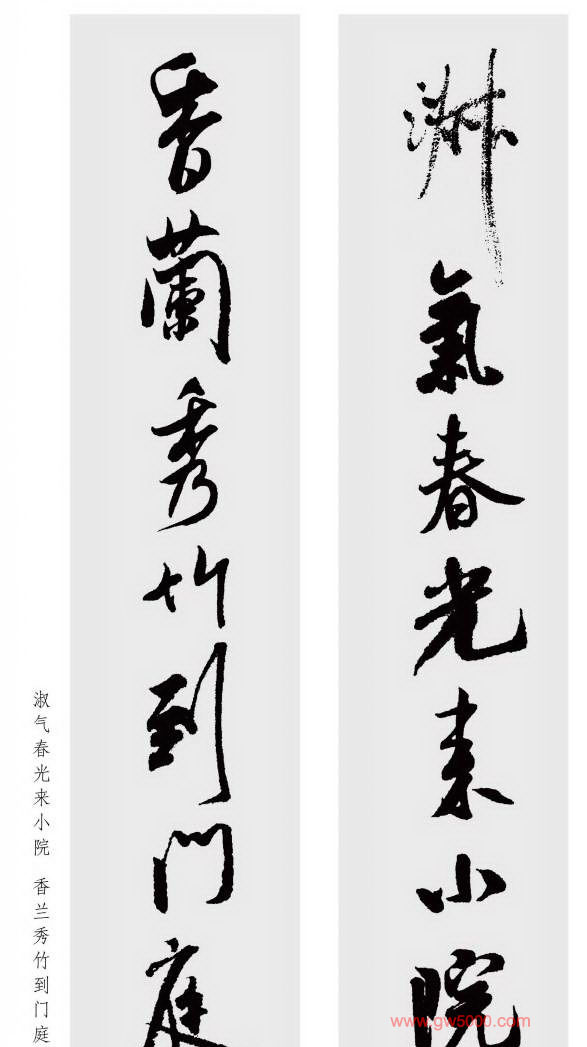 淑氣春光来小院
香蘭秀竹到門庭
淑气春光来小院 香兰秀竹到门庭
www.gw5000.com